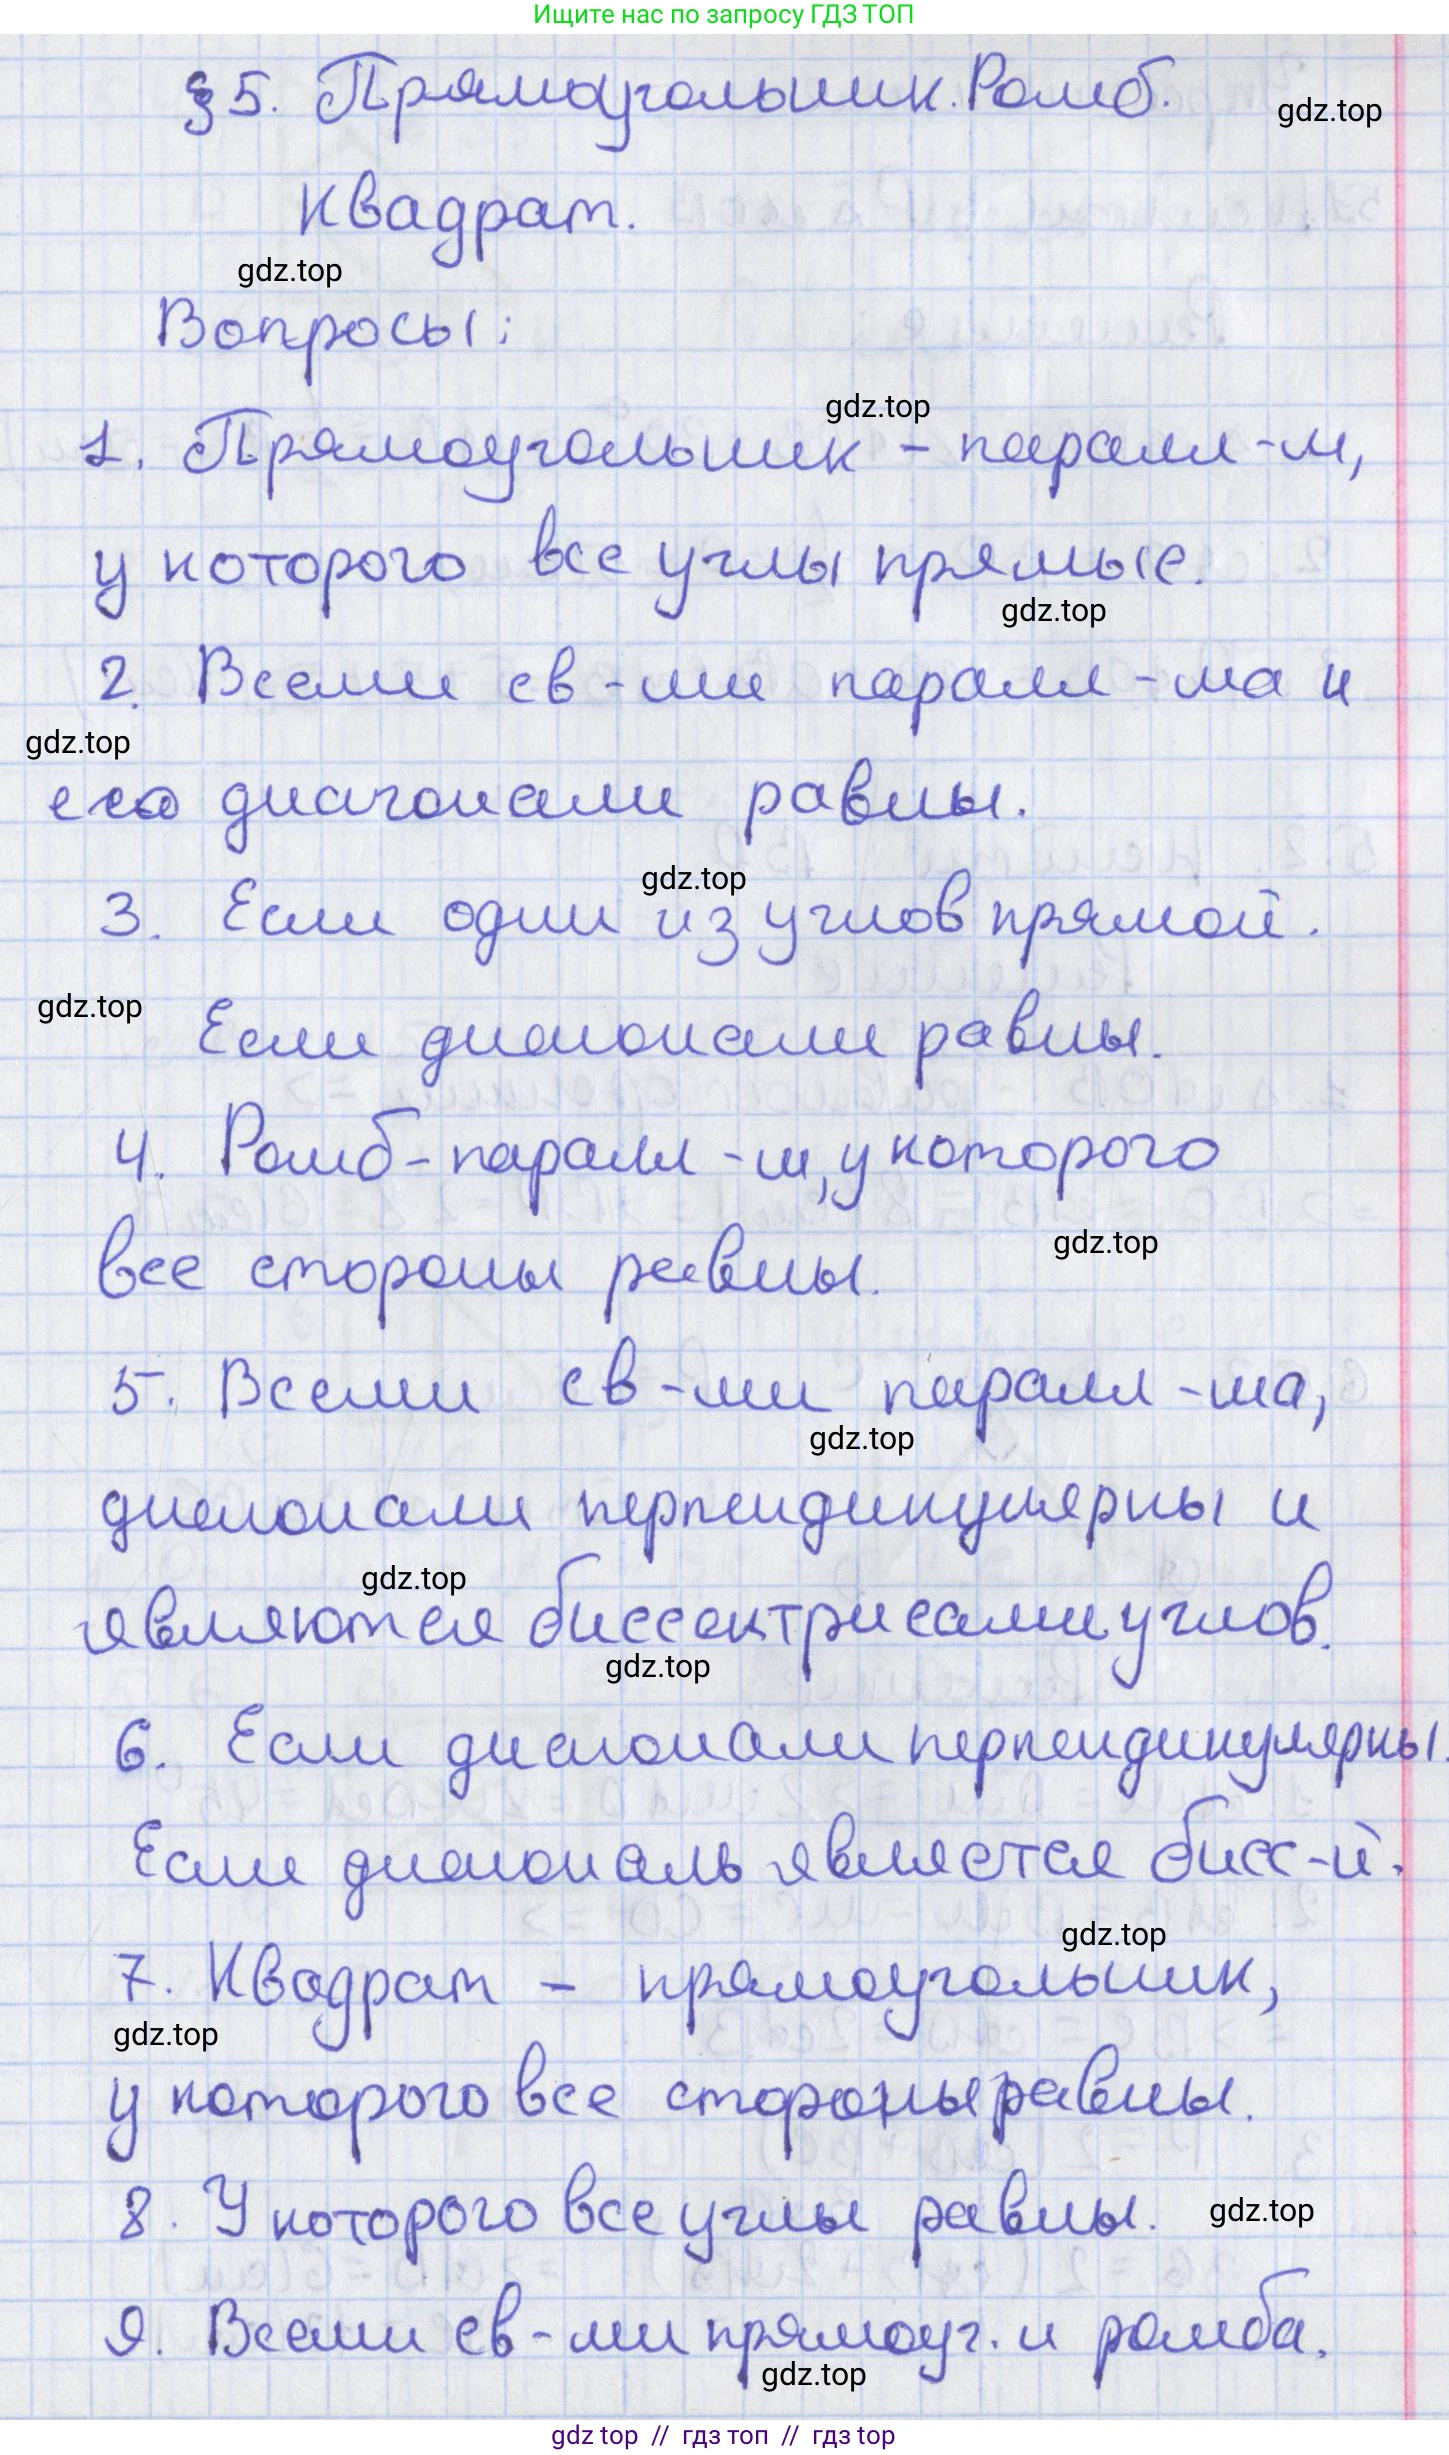 Ищите нас по запросу ГДЗ ТОП
§ 5. Прямоугольник. Ромб.
gdz.top
Квадрат.
gdz.top
Вопросы:
gdz.top
1. Прямоугольник - паралл-м,
у которого все углы прямые.
gdz.top
2. Всеми св-ми паралл-ма и
gdz.top
его диагонали равны.
gdz.top
3. Если один из углов прямой.
gdz.top
Если диагонали равны.
4. Ромб - паралл-м, у которого
gdz.top
все стороны равны.
5. Всеми св-ми паралл-ма,
gdz.top
диагонали перпендикулярны и
gdz.top
являются биссектрисами углов.
gdz.top
6. Если диагонали перпендикулярны.
Если диагональ является бисс-й.
gdz.top
7. Квадрат - прямоугольник,
gdz.top
у которого все стороны равны.
8. У которого все углы равны.
gdz.top
9. Всеми св-ми прямоуг. и ромба.
gdz.top
gdz top // гдз топ // гдз top